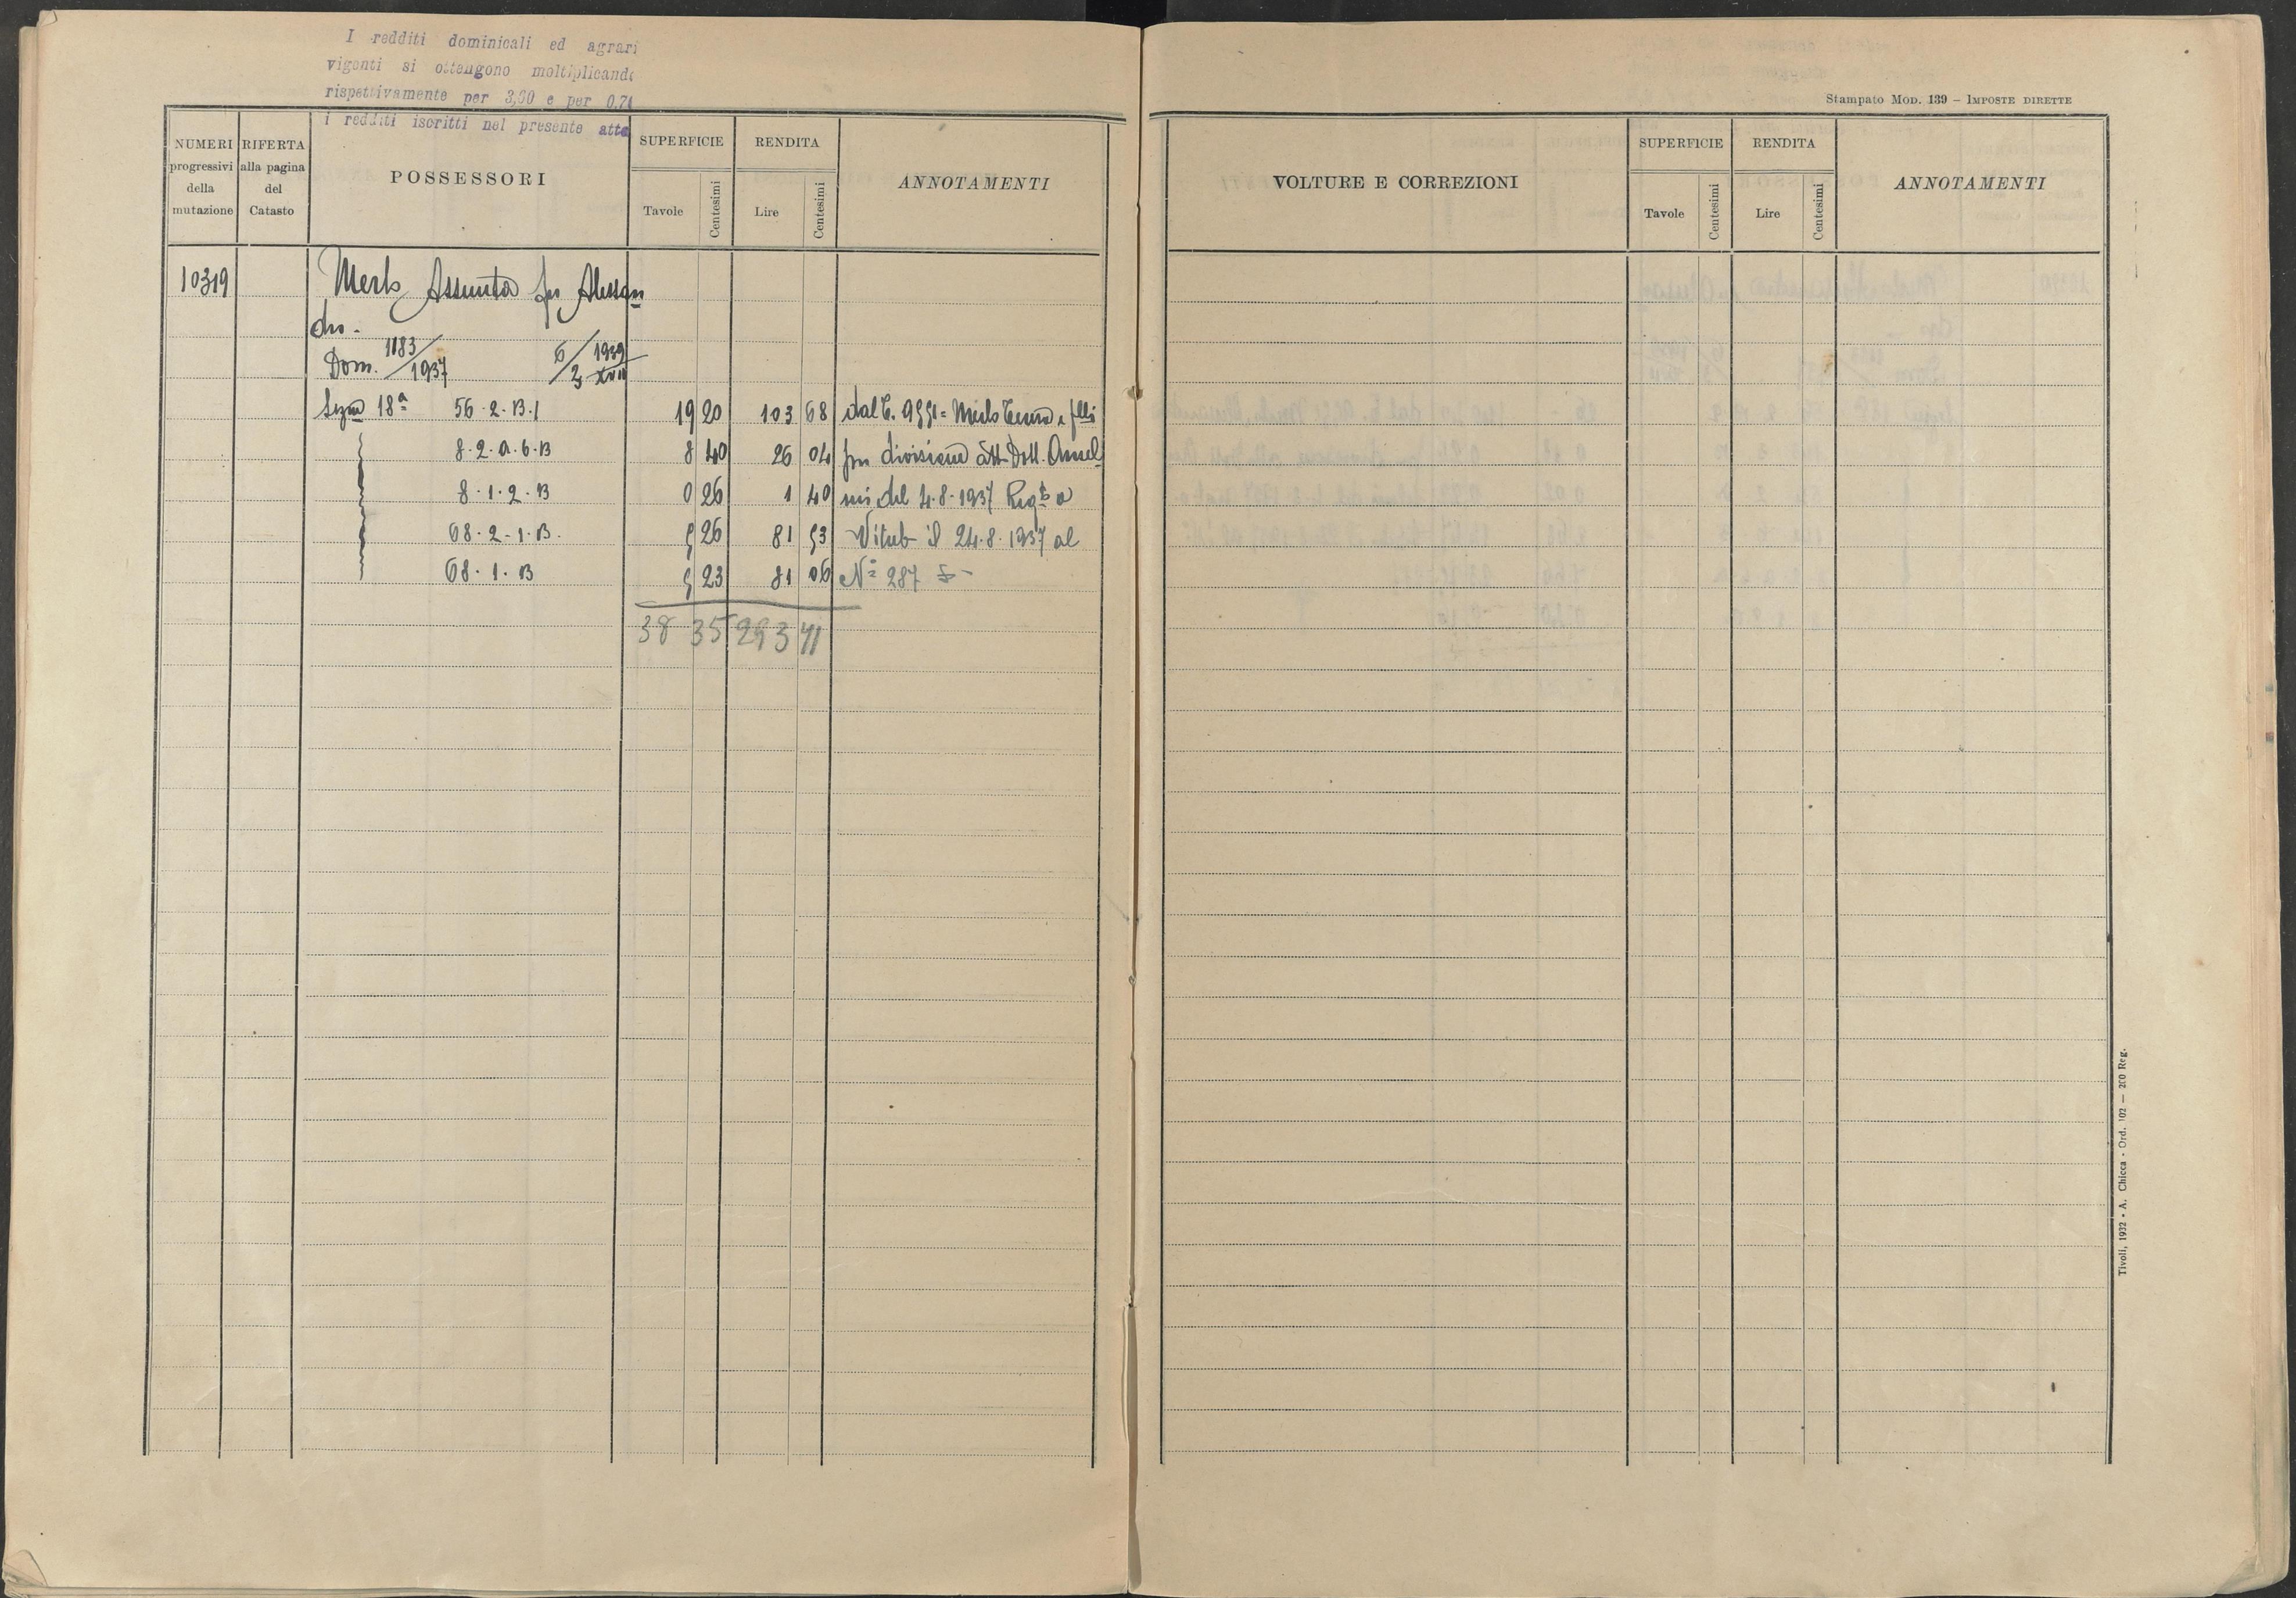 I redditi dominicali ed agrari
vigenti si ottengono moltiplicando
rispettivamente per 3,60 e per 0,7
i redditi iscritti nel presente atto
NUMERI progressivi della mutazione
RIFERTA alla pagina del Catasto
POSSESSORI
SUPERFICIE
Tavole Centesimi
RENDITA
Lire Centesimi
ANNOTAMENTI
10319 Merlo Assunta fu Alessan
dro.
Dom. 1183/1937 6/3 1939 XVII
Sezne 18ª 56-2-B.1 19 20 103 68 dal C. 9991= Merlo e flli
8-2-a-6-B 8 40 26 04 per divisione att. Dott. Ansel
8-1-2-B 0 26 1 40 mi del 4-8-1937 Regto a
68-2-1-B. 5 26 81 53 Viterb il 24-8-1937 al
68-1-B 5 23 81 06 N° 287
38 35 293 71
Stampato MOD. 139 – IMPOSTE DIRETTE
VOLTURE E CORREZIONI
SUPERFICIE
Tavole Centesimi
RENDITA
Lire Centesimi
ANNOTAMENTI
Tivoli, 1932 - A. Chicca - Ord. 102 — 200 Reg.